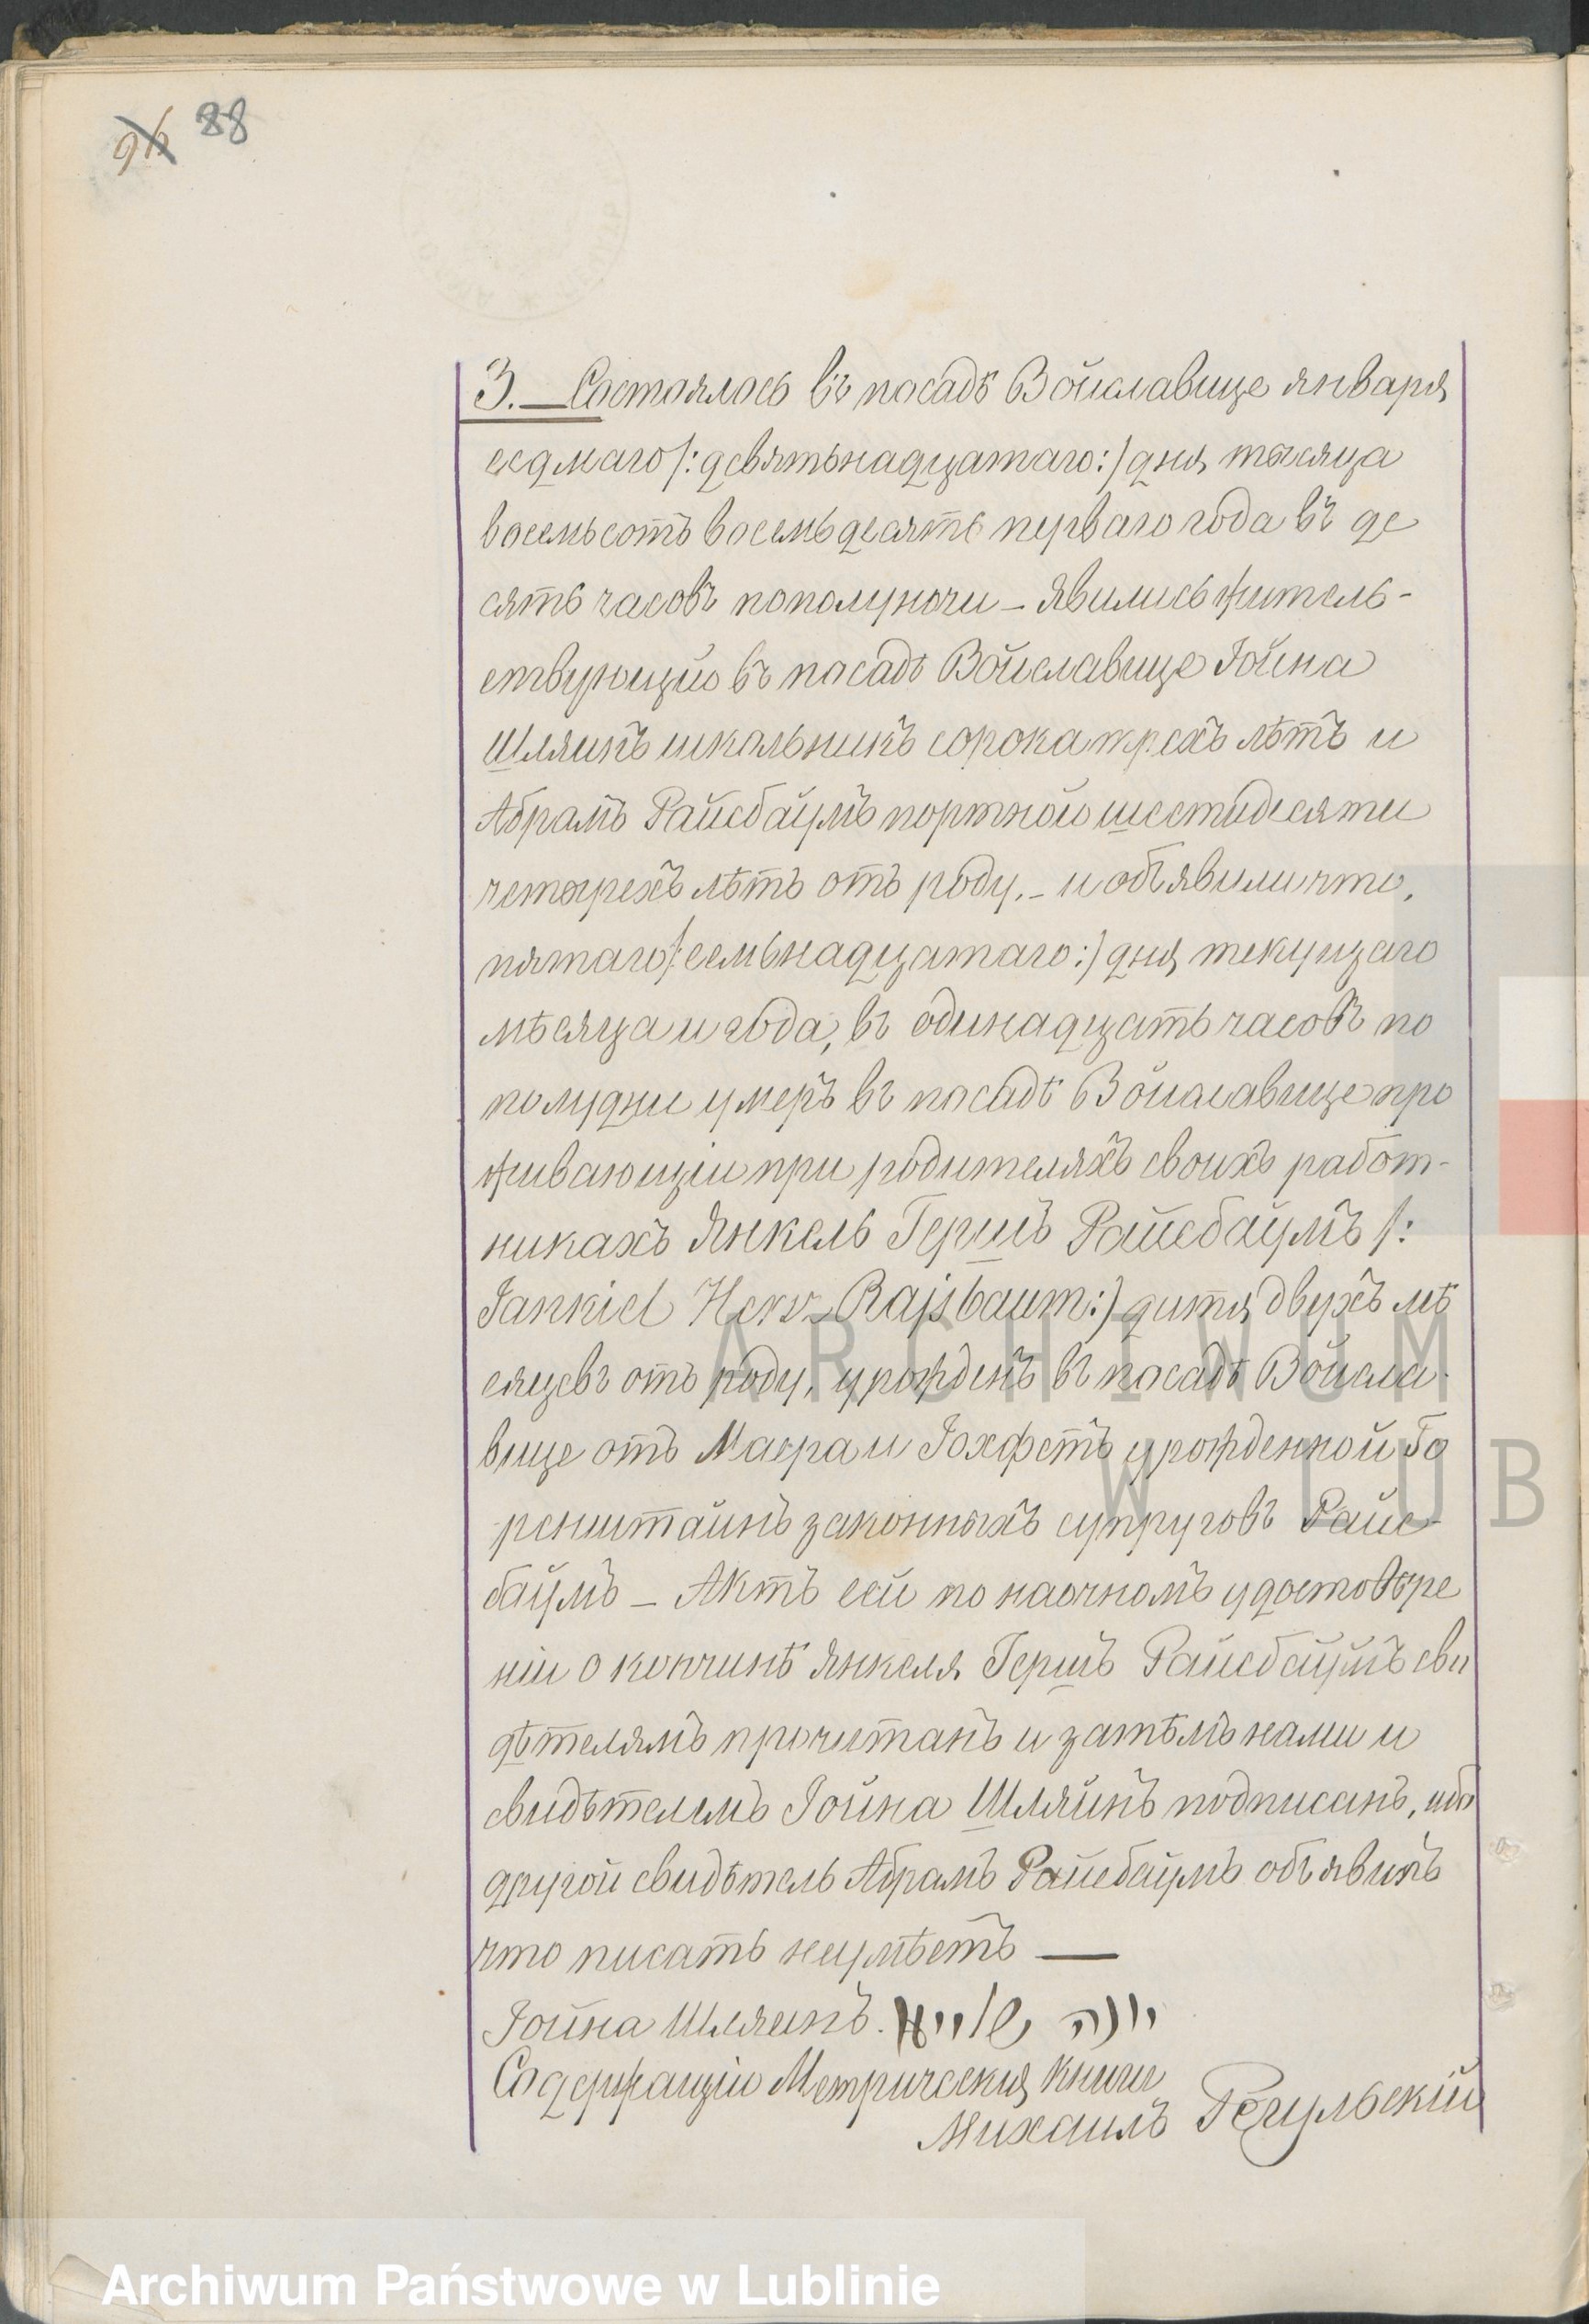 96 88
3. — Состоялось въ посадѣ Войславице января
седмаго /:девятьнадцатаго:/ дня тысяца
восемьсотъ восемьдесятъ перваго года въ де
сять часовъ пополуночи – явились житель-
ствующіи въ посадѣ Войславице Іойна
Шляинъ школьникъ сорока трехъ лѣтъ и
Абрамъ Райсбаумъ портной шестидесяти
четырехъ лѣтъ отъ роду, – и объявили что,
пятаго /:семьнадцатаго:/ дня текущаго
мѣсяца и года, въ одинадцать часовъ по
полудни умеръ въ посадѣ Войславице про
живающіи при родителяхъ своихъ работ-
никахъ Янкель Гершъ Райсбаумъ /:
Jankiel Hersz Rajsbaum:/ дитя двухъ мѣ
сяцевъ отъ роду, урожденъ въ посадѣ Войсла-
вице отъ Маера и Іохфетъ урожденной Бо
ренштайнъ законныхъ супруговъ Райс-
баумъ – Актъ сей по наочномъ удостовѣре
ніи о кончинѣ Янкеля Гершъ Райсбаумъ сви
дѣтелямъ прочитанъ и затѣмъ нами и
свидѣтелемъ Іойна Шляйнъ подписанъ, ибо
другой свидѣтель Абрамъ Райсбаумъ объявилъ
что писать неумѣетъ —
Іойна Шляинъ. יונה
Содержащіи Метрическия книги
Михаилъ Регульскій
ARCHIWUM
W LUB
Archiwum Państwowe w Lublinie